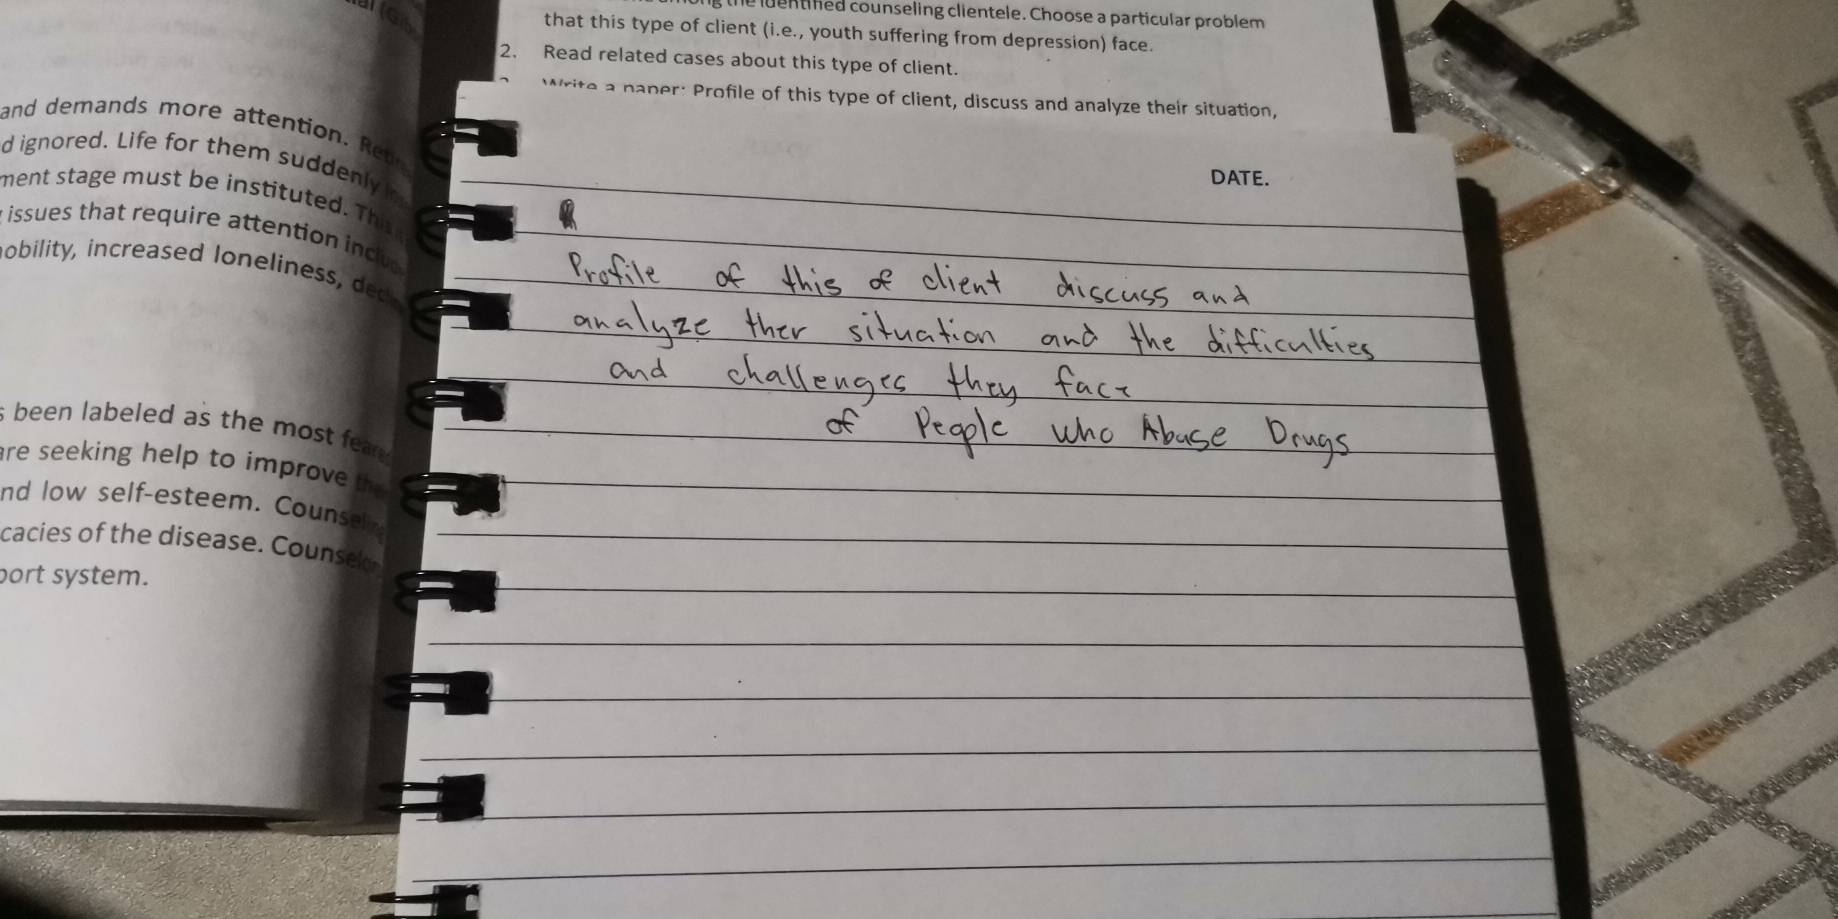 counseling clientele. Choose a particular problem
that this type of client (i.e., youth suffering from depression) face.
2. Read related cases about this type of client.
Write a paper: Profile of this type of client, discuss and analyze their situation,
and demands more attention.
d ignored. Life for them suddenly
ment stage must be instituted. This
issues that require attention
obility, increased loneliness,
s been labeled as the most
are seeking help to improve
nd low self-esteem.
cacies of the disease.
port system.
DATE.
Profile of this of client discuss and
analyze ther situation and the difficulties
and challenges they face
of People who Abuse Drugs